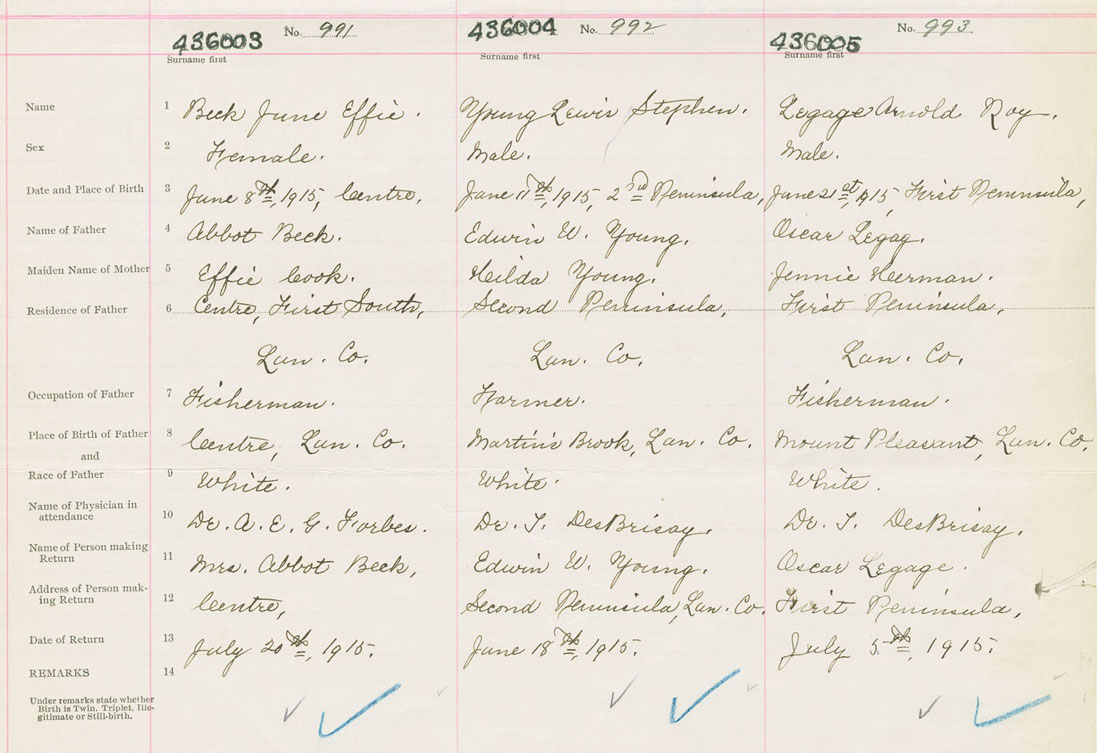 No. 991 No. 992 No. 993
436003 436004 436005
Surname first Surname first Surname first
Name 1 Beck June Effie. Young Lewis Stephen. Legage Arnold Roy.
Sex 2 Female. Male. Male.
Date and Place of Birth 3 June 8th, 1915, Centre, June 11th, 1915, 2nd Peninsula, June 21st, 1915, First Peninsula,
Name of Father 4 Abbot Beck. Edwin W. Young. Oscar Legag.
Maiden Name of Mother 5 Effie Cook. Hilda Young. Jennie Heerman.
Residence of Father 6 Centre, First South, Second Peninsula, First Peninsula,
Lun. Co. Lun. Co. Lun. Co.
Occupation of Father 7 Fisherman. Farmer. Fisherman.
Place of Birth of Father 8 Centre, Lun. Co. Martin's Brook, Lun. Co. Mount Pleasant, Lun. Co.
and
Race of Father 9 White. White. White.
Name of Physician in
attendance 10 Dr. A. E. G. Forbes. Dr. T. DesBrisay. Dr. T. DesBrisay.
Name of Person making
Return 11 Mrs. Abbot Beck, Edwin W. Young. Oscar Legage.
Address of Person mak-
ing Return 12 Centre, Second Peninsula, Lun. Co. First Peninsula,
Date of Return 13 July 20th, 1915. June 18th, 1915. July 5th, 1915.
REMARKS 14
Under remarks state whether
Birth is Twin, Triplet, Ille-
gitimate or Still-birth.